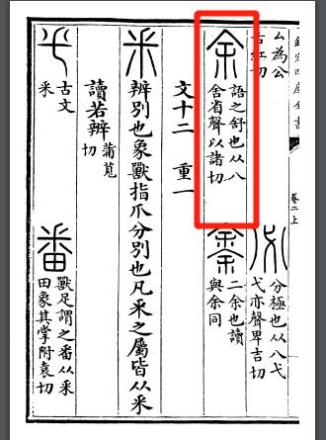 卷二上
厶為公
古紅切
必
分極也从八弋
弋亦聲卑吉切
余
語之舒也从八
舍省聲以諸切
二余也讀
與余同
文十二 重一
釆
辨別也象獸指爪分別也凡釆之屬皆从釆
讀若辨
蒲莧
切
古文
釆
番
獸足謂之番从釆
田象其掌附袁切